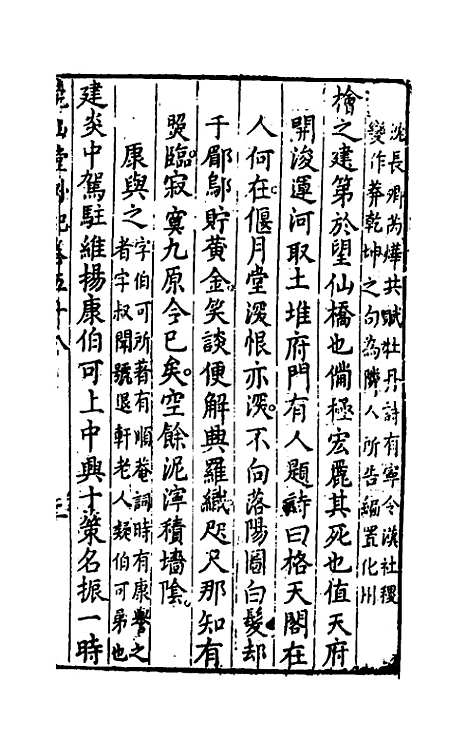 沈長卿芮燁共賦牡丹詩有寧令漢社稷
變作莽乾坤之句為隣人所告編置化州
檜之建第於望仙橋也備極宏麗其死也值天府
開浚運河取土堆府門有人題詩曰格天閣在
人何在偃月堂深恨亦深不向落陽圖白髮却
于郿鄔貯黃金笑談便解興羅織咫尺那知有
照臨寂寞九原今已矣空餘泥濘積墻陰
康與之字伯可所著有順菴詞時有康譽之
者字叔聞號退軒老人類伯可弟也
建炎中駕駐維揚康伯可上中興十策名振一時
堯山堂外紀卷五十八